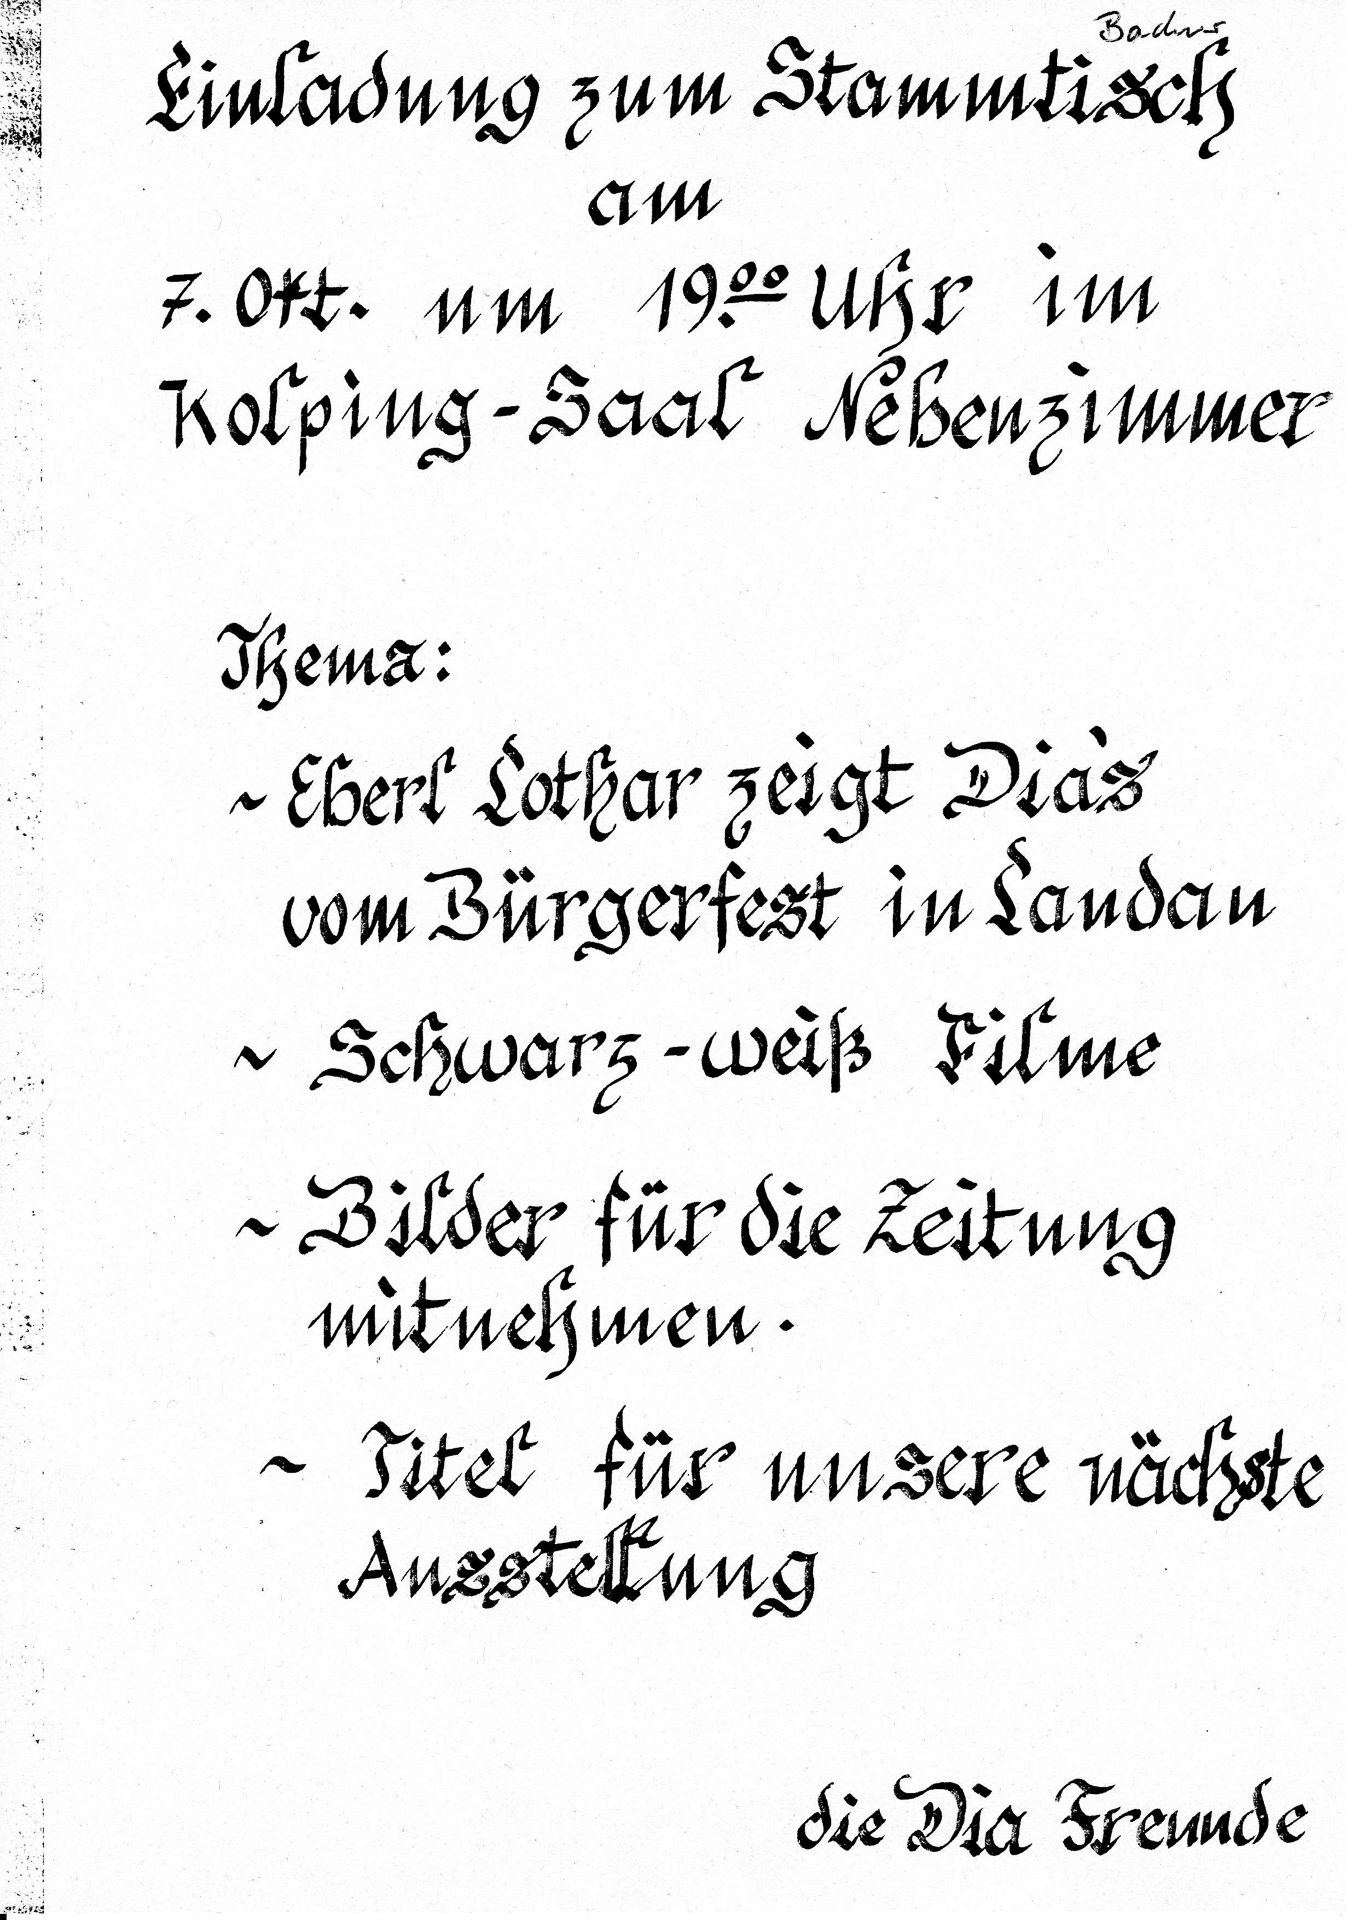 Einladung zum Stammtisch
am
7. Okt. um 19.00 Uhr im
Kolping-Saal Nebenzimmer
Thema:
~ Eberl Lothar zeigt Dia's
vom Bürgerfest in Landau
~ Schwarz-weiß Filme
~ Bilder für die Zeitung
mitnehmen.
~ Titel für unsere nächste
Ausstellung
die Dia Freunde